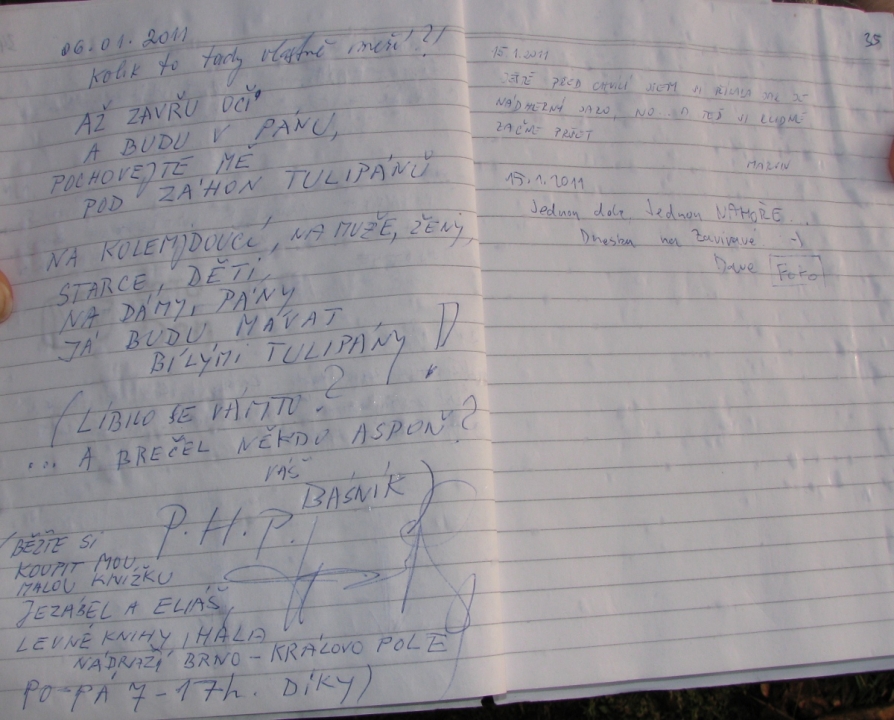 06.01.2011
Kolik to tady vlastně měří?!
AŽ ZAVŘU OČI
A BUDU V PÁNU,
POCHOVEJTE MĚ
POD ZÁHON TULIPÁNŮ
NA KOLEMJDOUCÍ, NA MUŽE, ŽENY,
STARCE, DĚTI,
NA DÁMY, PÁNY
JÁ BUDU MÁVAT
BÍLÝMI TULIPÁNY!
(LÍBILO SE VÁM TO?
... A BREČEL NĚKDO ASPOŇ?
VÁŠ
BÁSNÍK)
P.H.P.
(BĚŽTE SI
KOUPIT MOU
MALOU KNÍŽKU
JEZÁBEL A ELIÁŠ,
LEVNÉ KNIHY, HALA
NÁDRAŽÍ BRNO - KRÁLOVO POLE
PO-PÁ 7-17h. DÍKY)
35
15.1.2011
JEŠTĚ PŘED CHVÍLÍ JSEM SI ŘÍKALA JAK JE
NÁDHERNÝ JARO, NO... A TEĎ SI KLIDNĚ
ZAČNE PRŠET
15.1.2011
Jednou dole, Jednou NAHOŘE...
Dneska na :-)
Foto